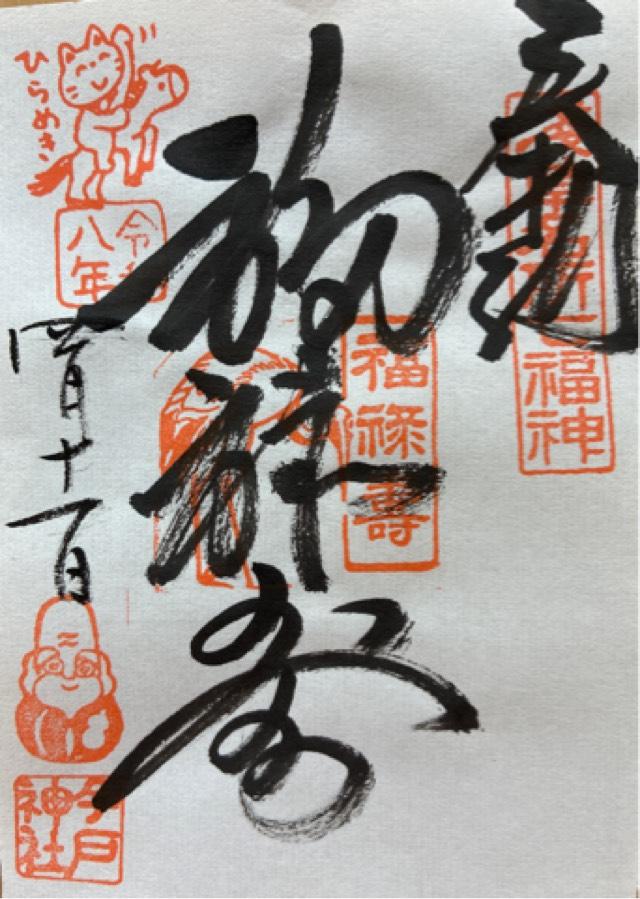 奉拝
浅草名所七福神
福禄寿
福禄壽
ひらめき
令和八年
四月十一日
今戸神社